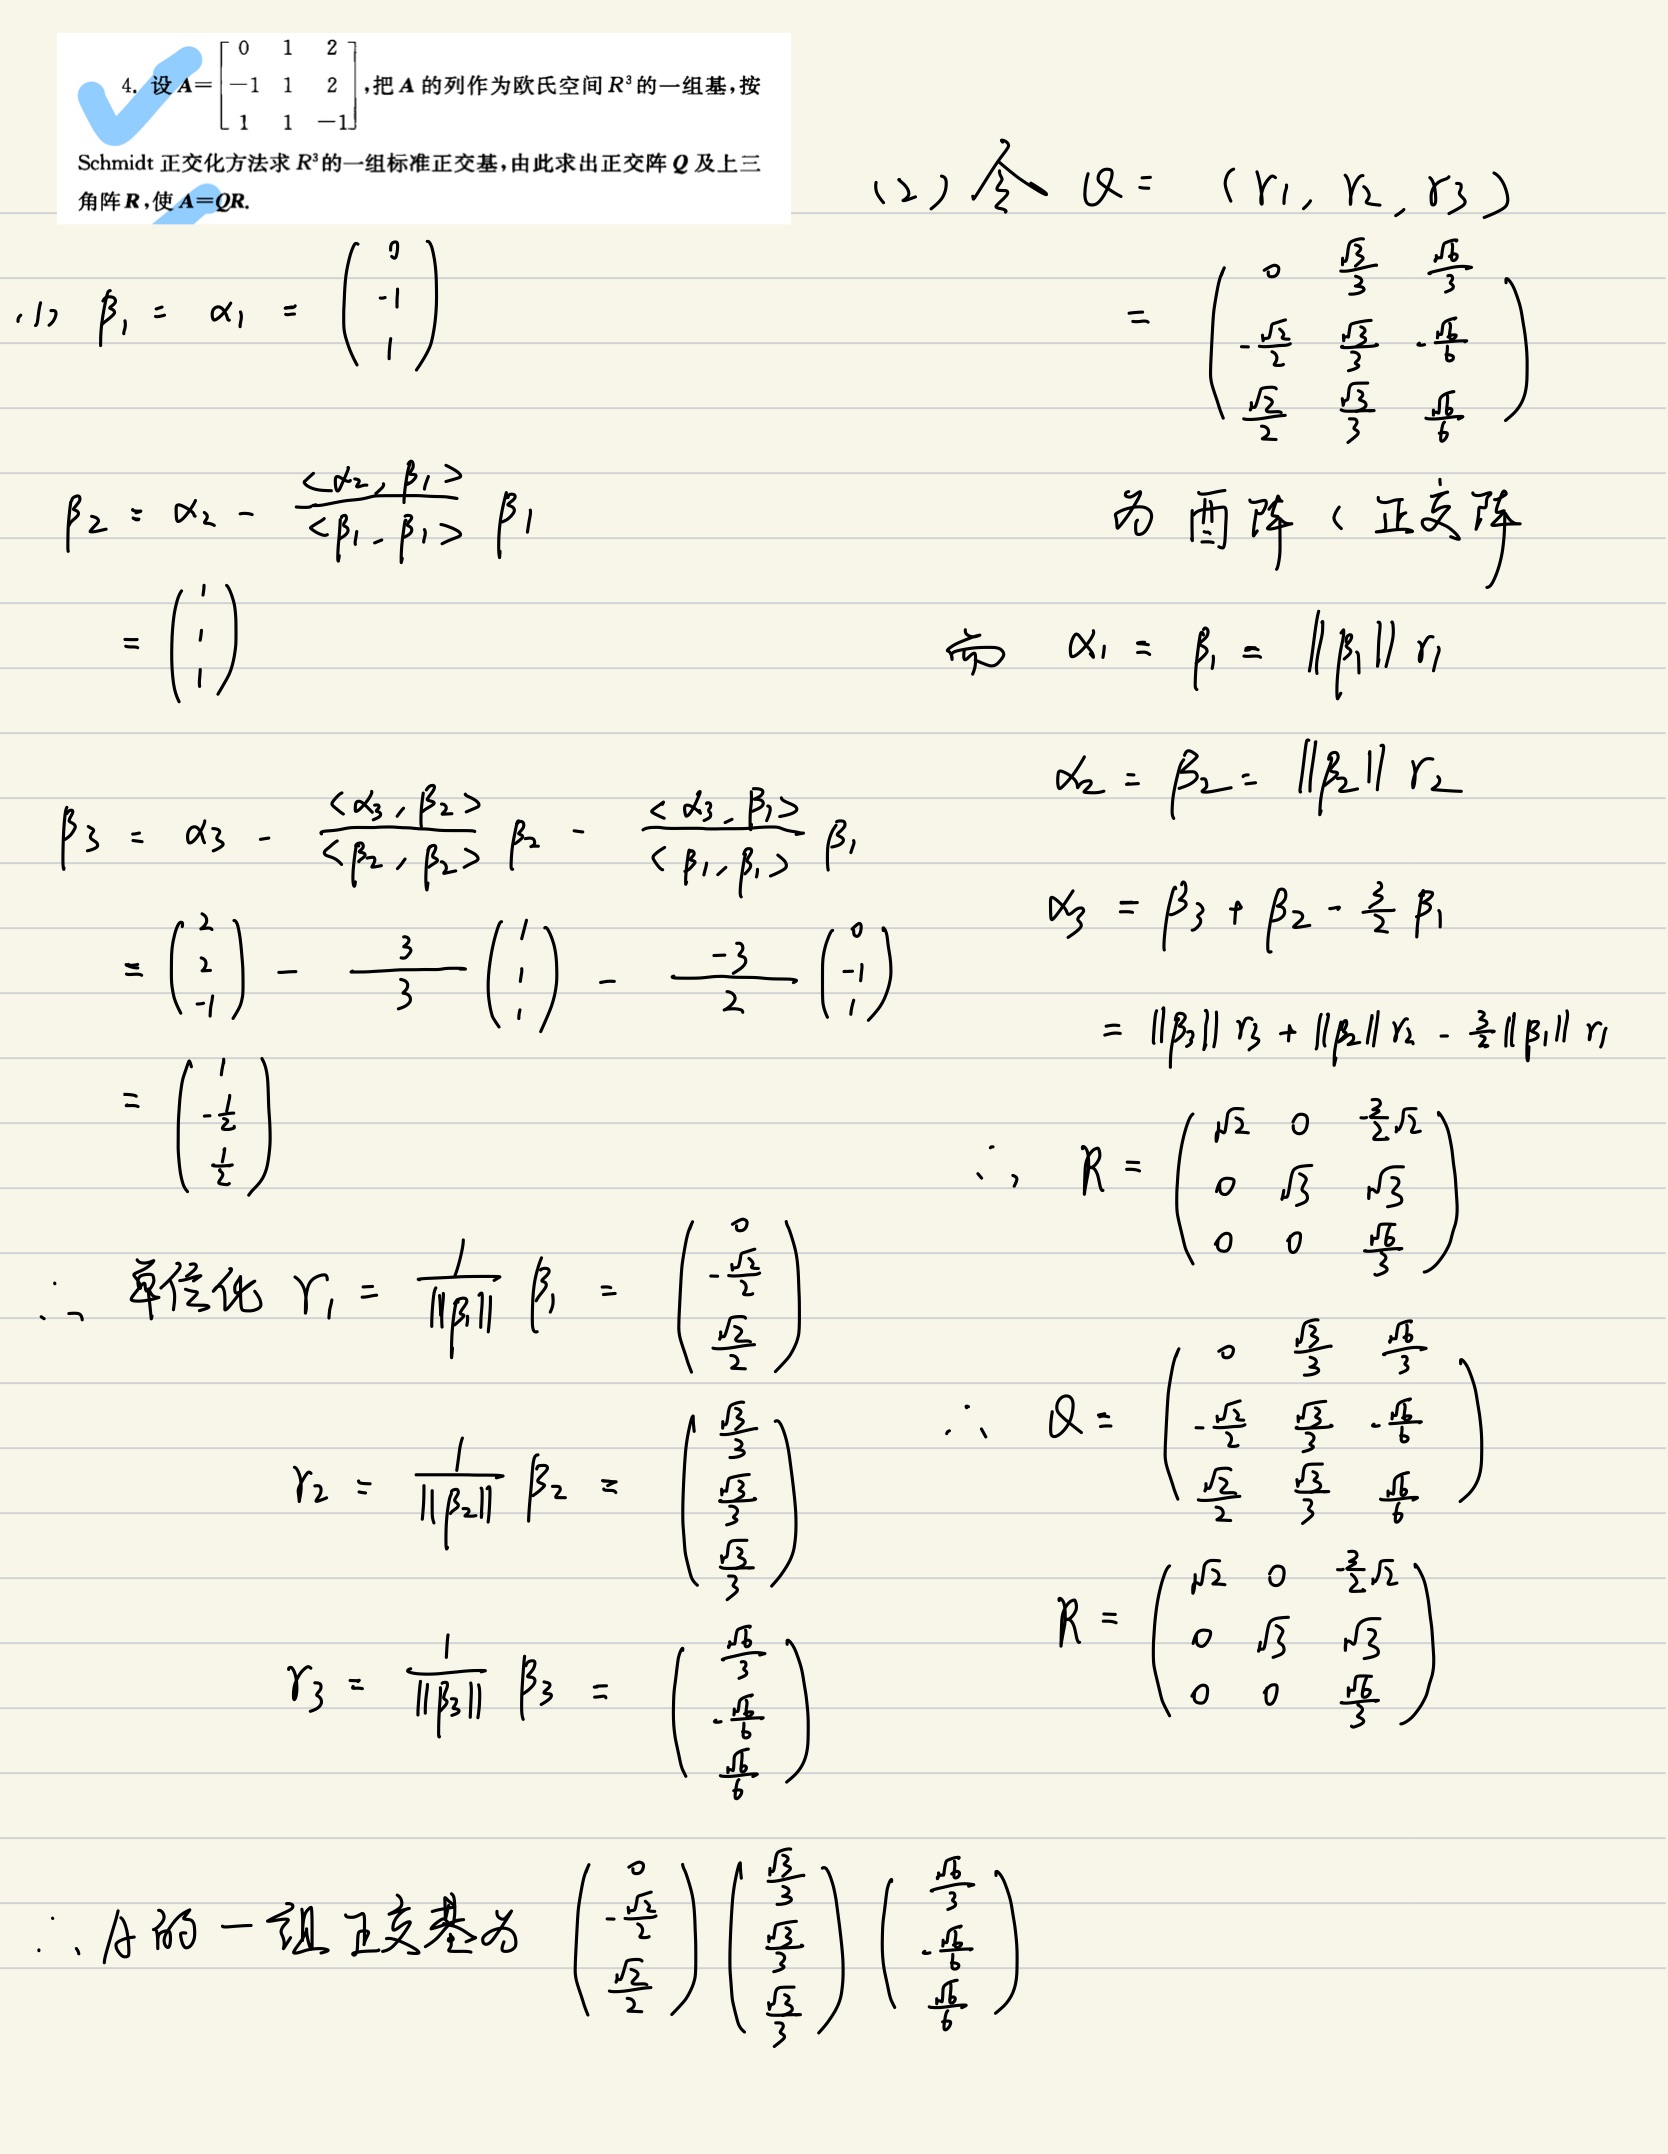 4. 设 A= [ 0 1 2 ; -1 1 2 ; 1 1 -1 ] ,把 A 的列作为欧氏空间 R³ 的一组基,按
Schmidt 正交化方法求 R³ 的一组标准正交基,由此求出正交阵 Q 及上三
角阵 R,使 A=QR.
(1) β₁ = α₁ = ( 0 ; -1 ; 1 )
β₂ = α₂ - <α₂, β₁> / <β₁, β₁> β₁
= ( 1 ; 1 ; 1 )
β₃ = α₃ - <α₃, β₂> / <β₂, β₂> β₂ - <α₃, β₁> / <β₁, β₁> β₁
= ( 2 ; 2 ; -1 ) - 3/3 ( 1 ; 1 ; 1 ) - -3/2 ( 0 ; -1 ; 1 )
= ( 1 ; -1/2 ; 1/2 )
∴ 单位化 r₁ = 1/||β₁|| β₁ = ( 0 ; -√2/2 ; √2/2 )
r₂ = 1/||β₂|| β₂ = ( √3/3 ; √3/3 ; √3/3 )
r₃ = 1/||β₃|| β₃ = ( √6/3 ; -√6/6 ; √6/6 )
∴ A的一组正交基为 ( 0 ; -√2/2 ; √2/2 ) ( √3/3 ; √3/3 ; √3/3 ) ( √6/3 ; -√6/6 ; √6/6 )
(2) 令 Q = (r₁, r₂, r₃)
= ( 0 √3/3 √6/3 ; -√2/2 √3/3 -√6/6 ; √2/2 √3/3 √6/6 )
为酉阵 (正交阵
而 α₁ = β₁ = ||β₁|| r₁
α₂ = β₂ = ||β₂|| r₂
α₃ = β₃ + β₂ - 3/2 β₁
= ||β₃|| r₃ + ||β₂|| r₂ - 3/2 ||β₁|| r₁
∴ R = ( √2 0 -3/2√2 ; 0 √3 √3 ; 0 0 √6/3 )
∴ Q = ( 0 √3/3 √6/3 ; -√2/2 √3/3 -√6/6 ; √2/2 √3/3 √6/6 )
R = ( √2 0 -3/2√2 ; 0 √3 √3 ; 0 0 √6/3 )